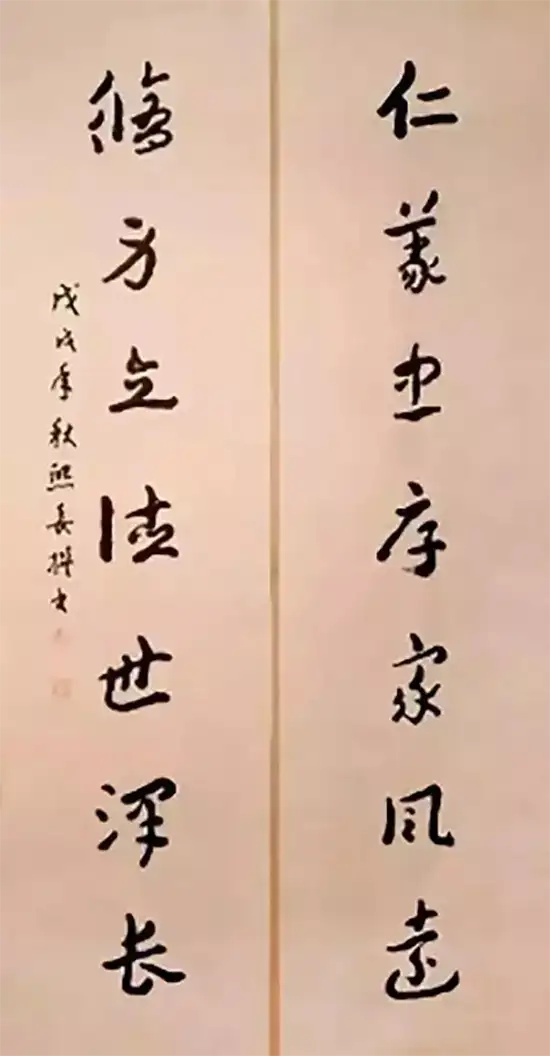 仁義忠厚家風遠
修身立德世澤長
戊戌年秋熙撰書